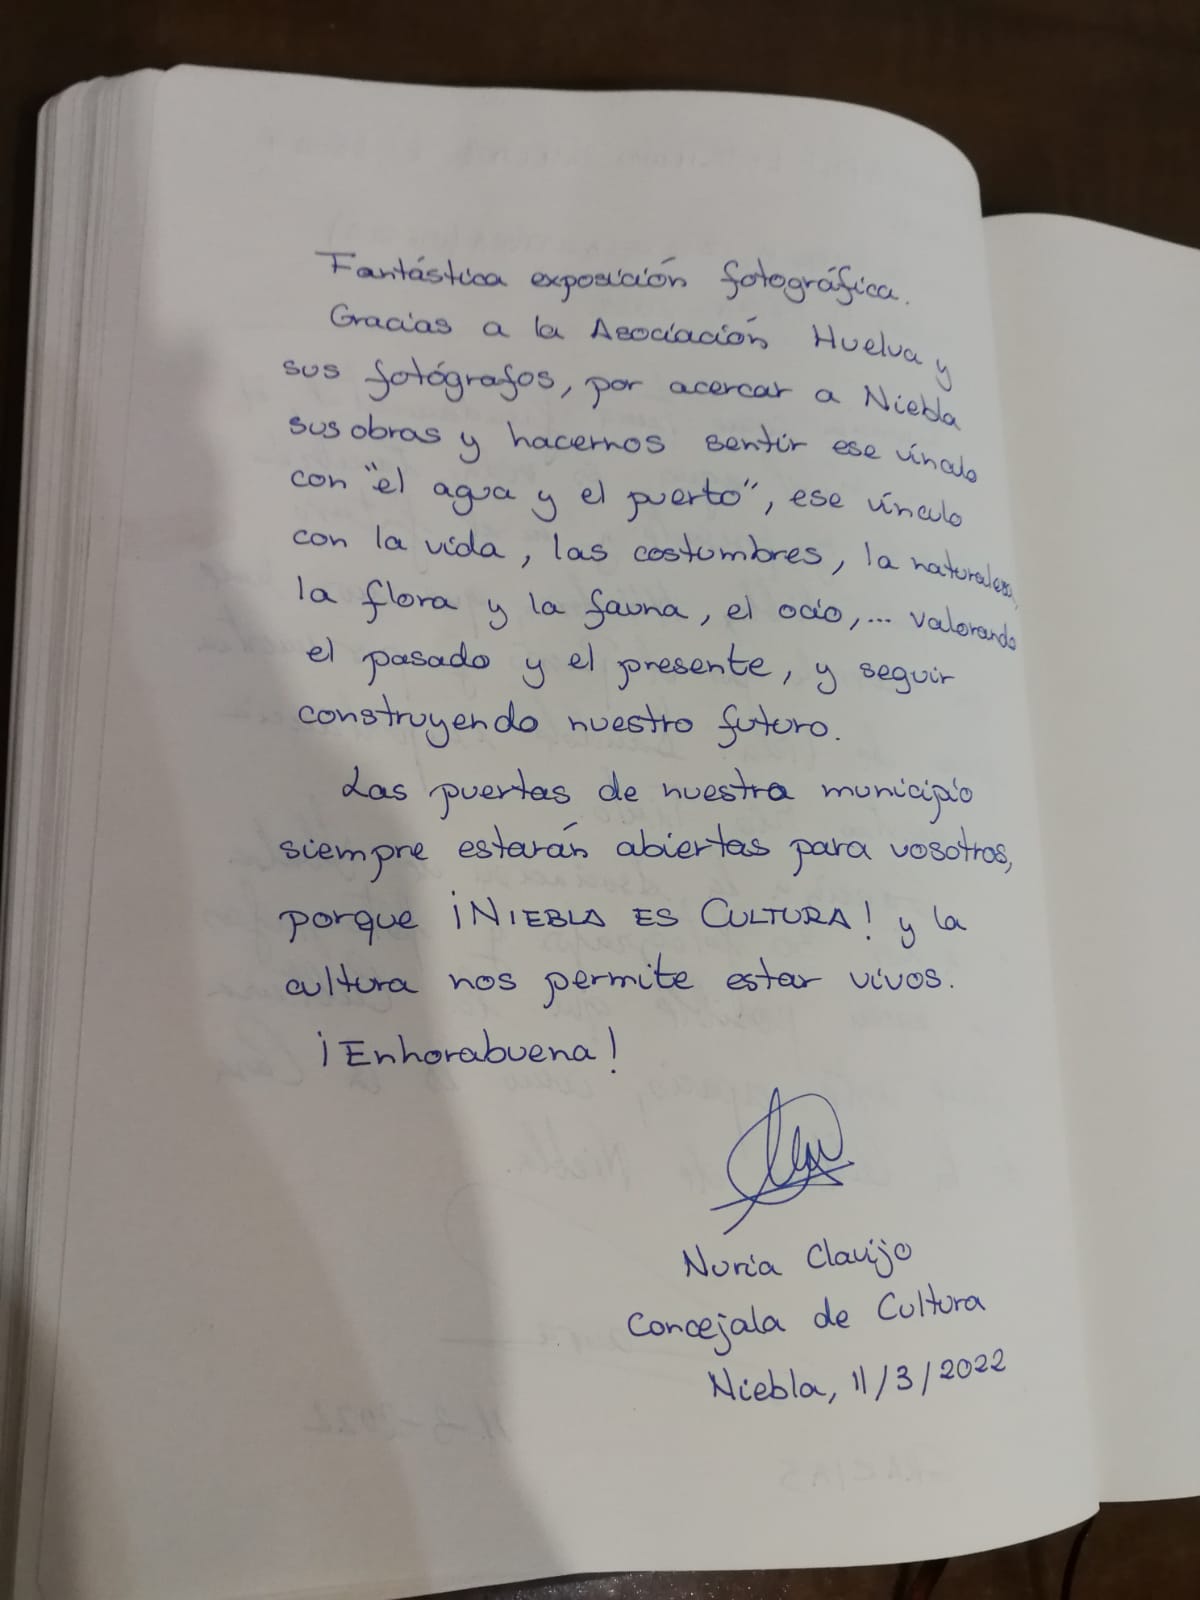 Fantástica exposición fotográfica.
Gracias a la Asociación Huelva y
sus fotógrafos, por acercar a Niebla
sus obras y hacernos sentir ese vínculo
con "el agua y el puerto", ese vínculo
con la vida, las costumbres, la naturaleza,
la flora y la fauna, el ocio,... valorando
el pasado y el presente, y seguir
construyendo nuestro futuro.
Las puertas de nuestra municipio
siempre estarán abiertas para vosotros,
porque ¡NIEBLA ES CULTURA! y la
cultura nos permite estar vivos.
¡Enhorabuena!
Nuria Clavijo
Concejala de Cultura
Niebla, 11/3/2022